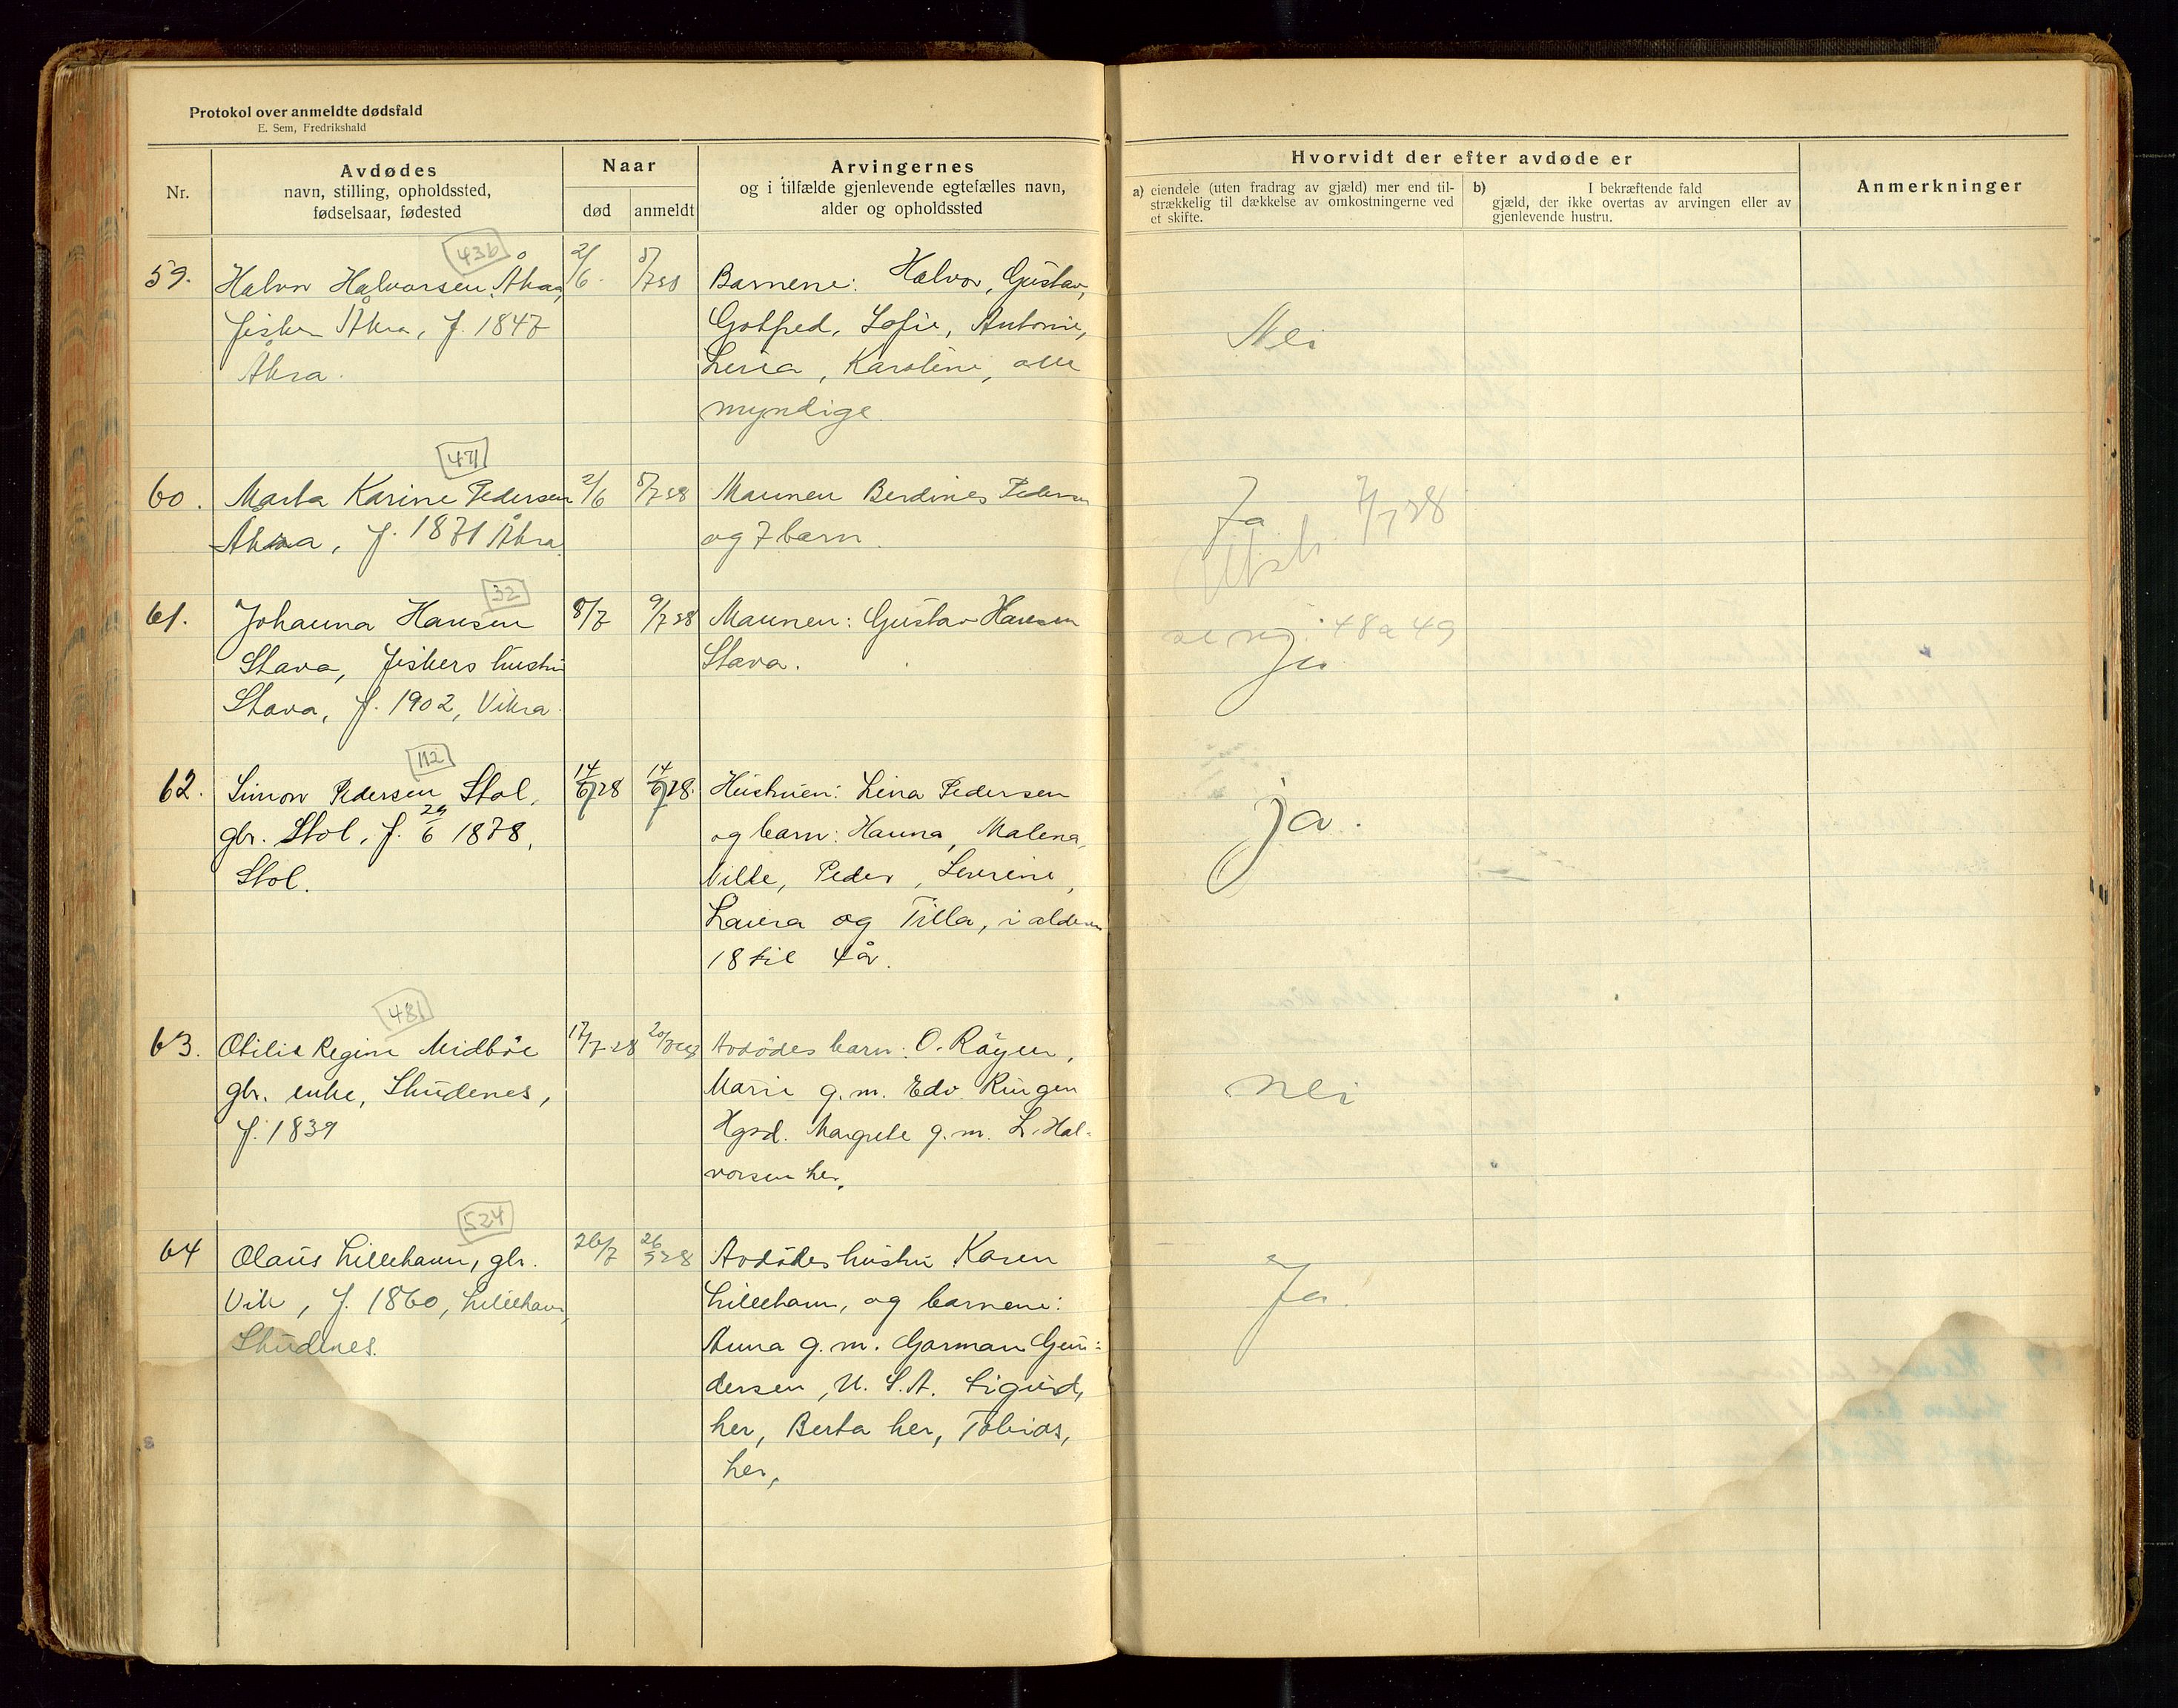 Protokol over anmeldte dødsfald
E. Sem, Fredrikshald
Nr.
Avdødes
navn, stilling, opholdssted,
fødselsaar, fødested
Naar
død
anmeldt
Arvingernes
og i tilfælde gjenlevende egtefælles navn,
alder og opholdssted
Hvorvidt der efter avdøde er
a) eiendele (uten fradrag av gjæld) mer end til-
strækkelig til dækkelse av omkostningerne ved
et skifte.
b) I bekræftende fald
gjæld, der ikke overtas av arvingen eller av
gjenlevende hustru.
Anmerkninger
436
59. Halvor Halvorsen Åkra, 2/6 5/7 28 Barnene: Halvor, Gustav,
fisker Åkra, f. 1847 Gotfred, Sofie, Antonie, Nei
Åkra. Lina, Karoline, alle
myndige.
471
60. Marta Karine Pedersen 2/6 5/7 28 Mannen Berdines Pedersen Ja 7/7 28
Åkra, f. 1871 Åkra og 7 barn. Utsk.
32
61. Johanna Hansen 8/7 9/7 28 Mannen: Gustav Hansen se reg. 48 a 49
Stava, fiskers hustru Stava. ja
Stava, f. 1902, Vikra.
112
62. Simon Pedersen Stol, 14/6 28 14/6 28. Hustruen: Lina Pedersen
gbr. Stol, f. 29/6 1878, og barn: Hanna, Malena, ja.
Stol. Vilde, Peder, Severine,
Laura og Tilla, i alderen
18 til 4 år.
481
63. Otilie Regine Midbøe 17/7 28 20/7 28 Avdødes barn: O. Røyen,
gbr. enke, Skudenes, Marie g. m. Edv. Ringen nei
f. 1839 Hgsd. Margrete g. m. L. Hal-
vorsen her.
524
64 Olaus Lillehavn, gbr. 26/7 26 28 Avdødes hustru Karen
Vik, f. 1860, Lillehavn, Lillehavn, og barnene: Ja.
Skudenes. Anna g. m. Gorman Gun-
dersen, U. S. A. Sigurd,
her, Berta her, Tobias,
her,